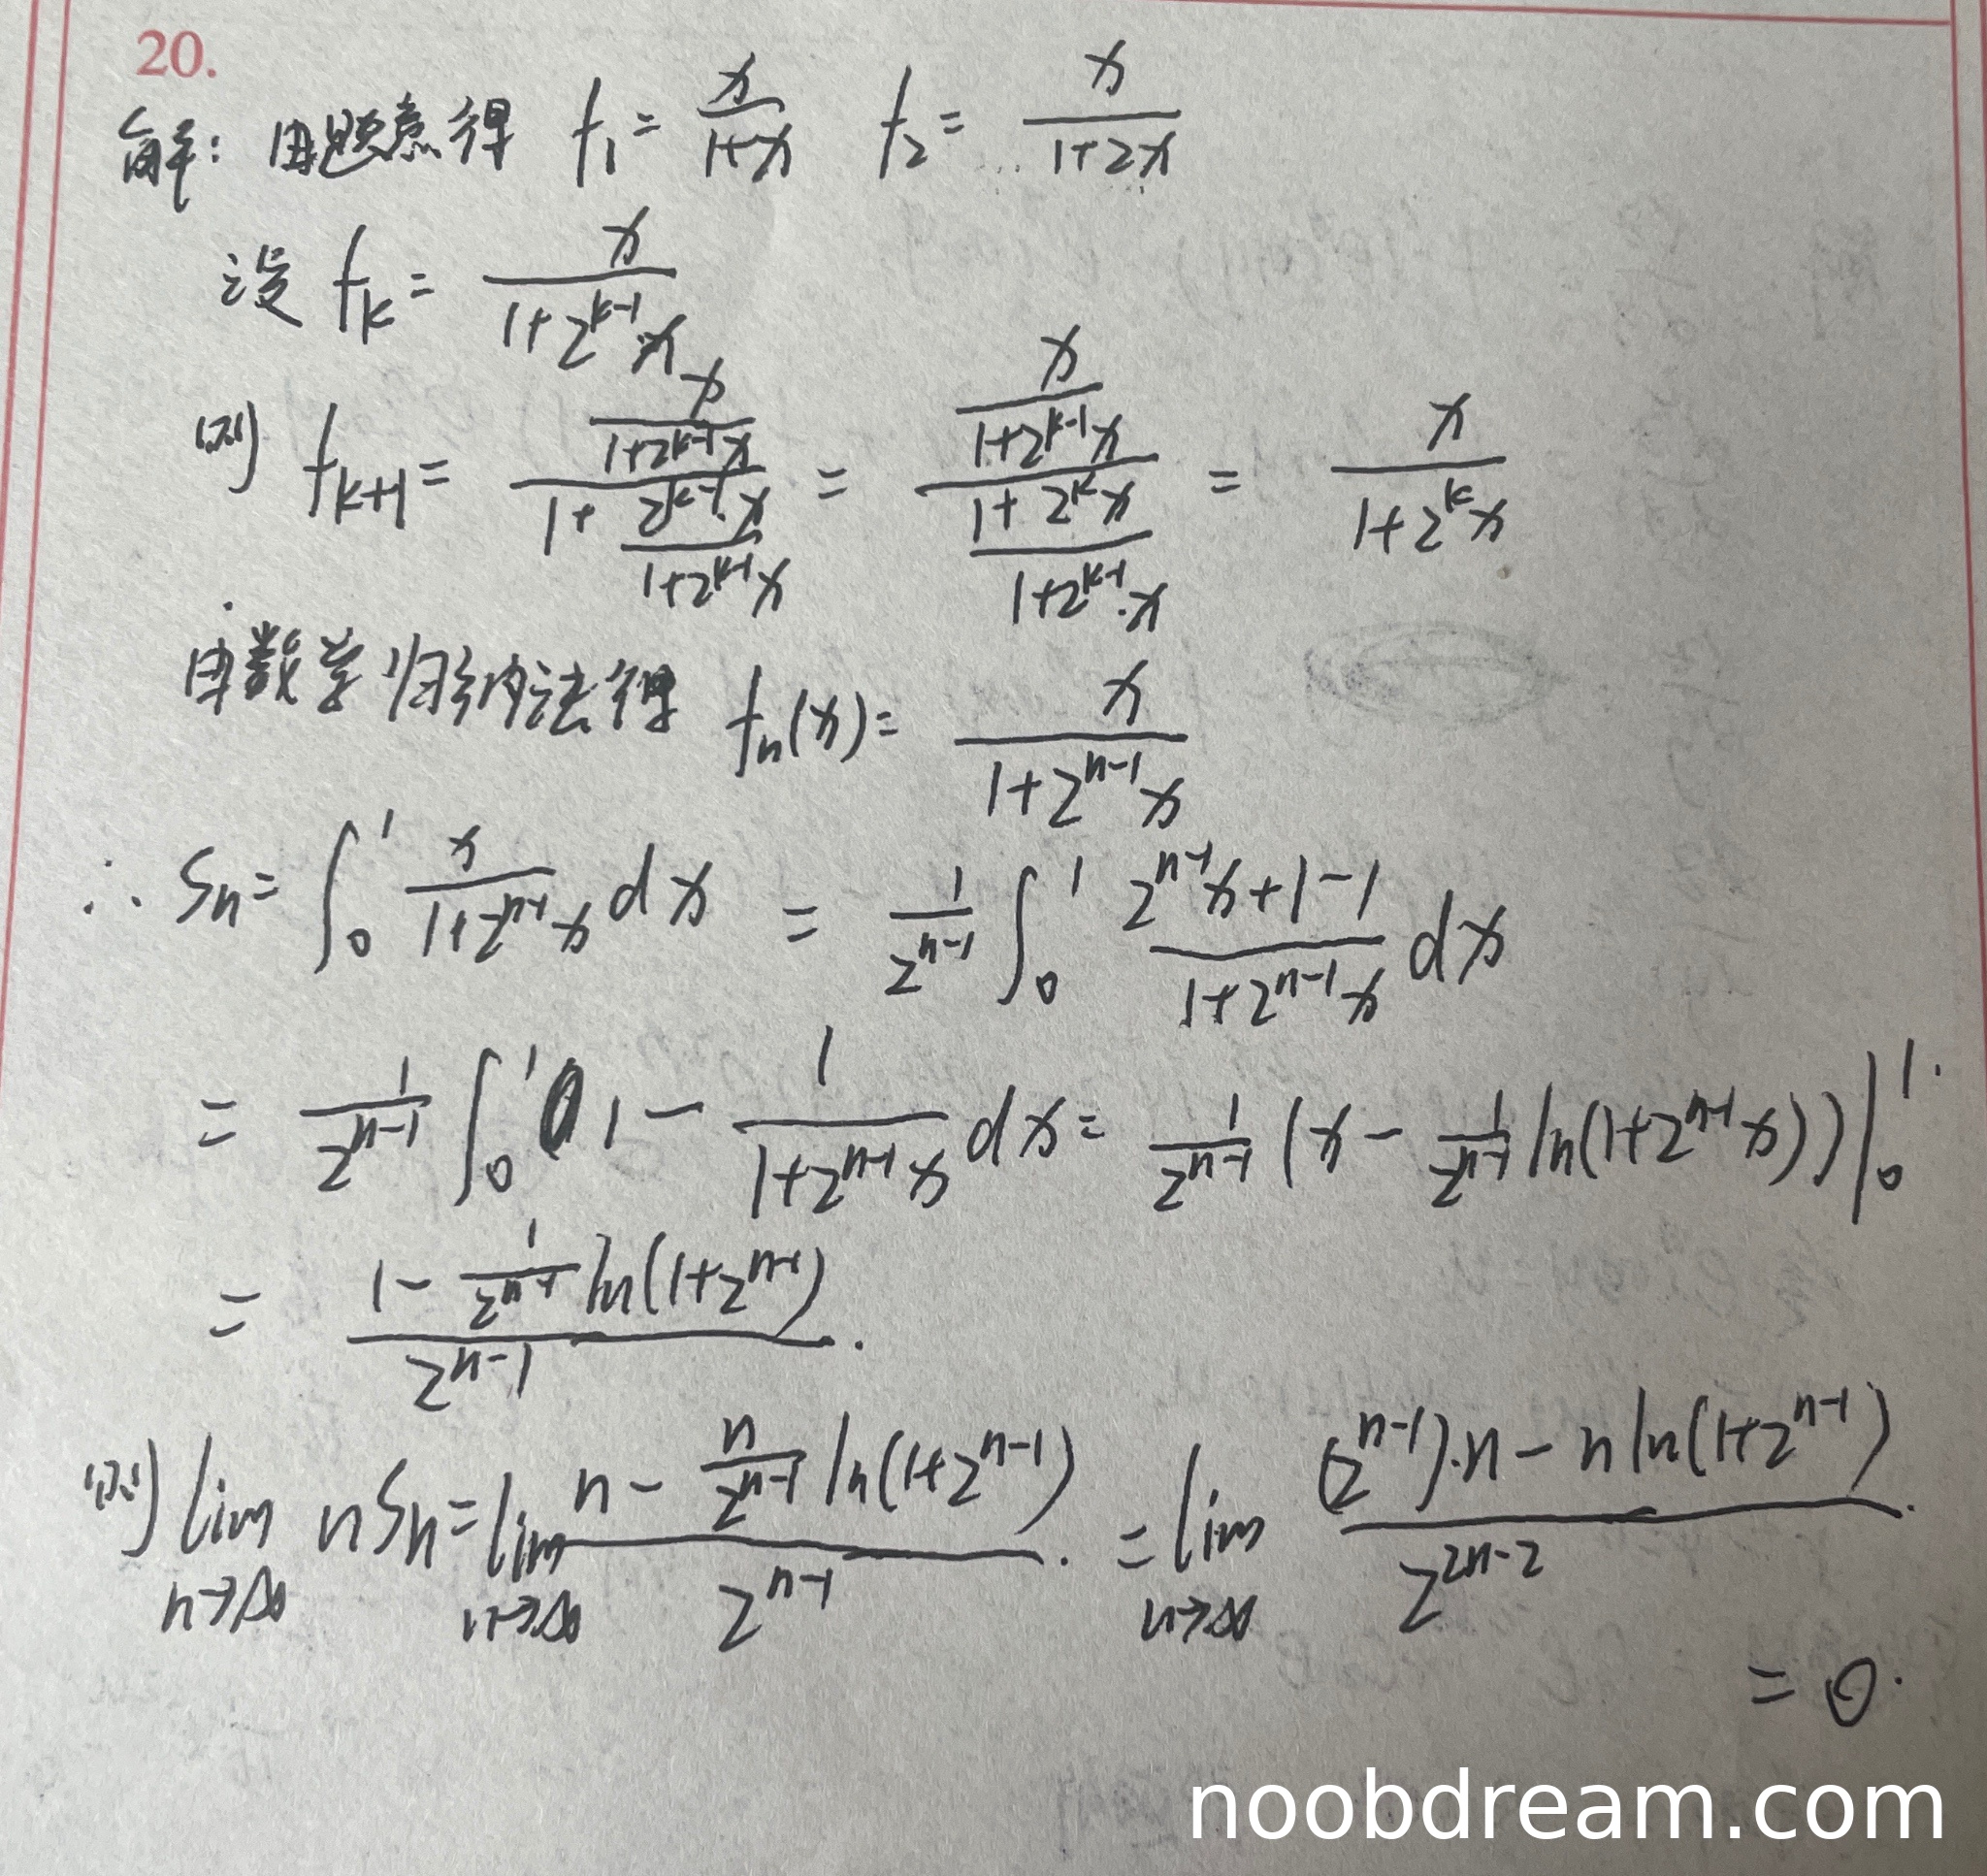 20.
解：由题意得 f₁ = x/(1+x) f₂ = x/(1+2x)
设 f_k = x/(1+2^(k-1)·x)
则 f_(k+1) = (x/(1+2^(k-1)x))/(1+(2^(k-1)·x)/(1+2^(k-1)x)) = (x/(1+2^(k-1)x))/((1+2^k x)/(1+2^(k-1)·x)) = x/(1+2^k x)
由数学归纳法得 f_n(x) = x/(1+2^(n-1)x)
∴ S_n = ∫₀¹ x/(1+2^(n-1)x) dx = 1/2^(n-1) ∫₀¹ (2^(n-1)x+1-1)/(1+2^(n-1)x) dx
= 1/2^(n-1) ∫₀¹ 1 - 1/(1+2^(n-1)x) dx = 1/2^(n-1) (x - 1/2^(n-1) ln(1+2^(n-1)x))|₀¹.
= (1 - 1/2^(n-1) ln(1+2^(n-1)))/2^(n-1).
则 lim_(n→∞) nS_n = lim_(n→∞) (n - n/2^(n-1) ln(1+2^(n-1)))/2^(n-1). = lim_(n→∞) ((2^(n-1))·n - n ln(1+2^(n-1)))/2^(2n-2).
= 0.
noobdream.com